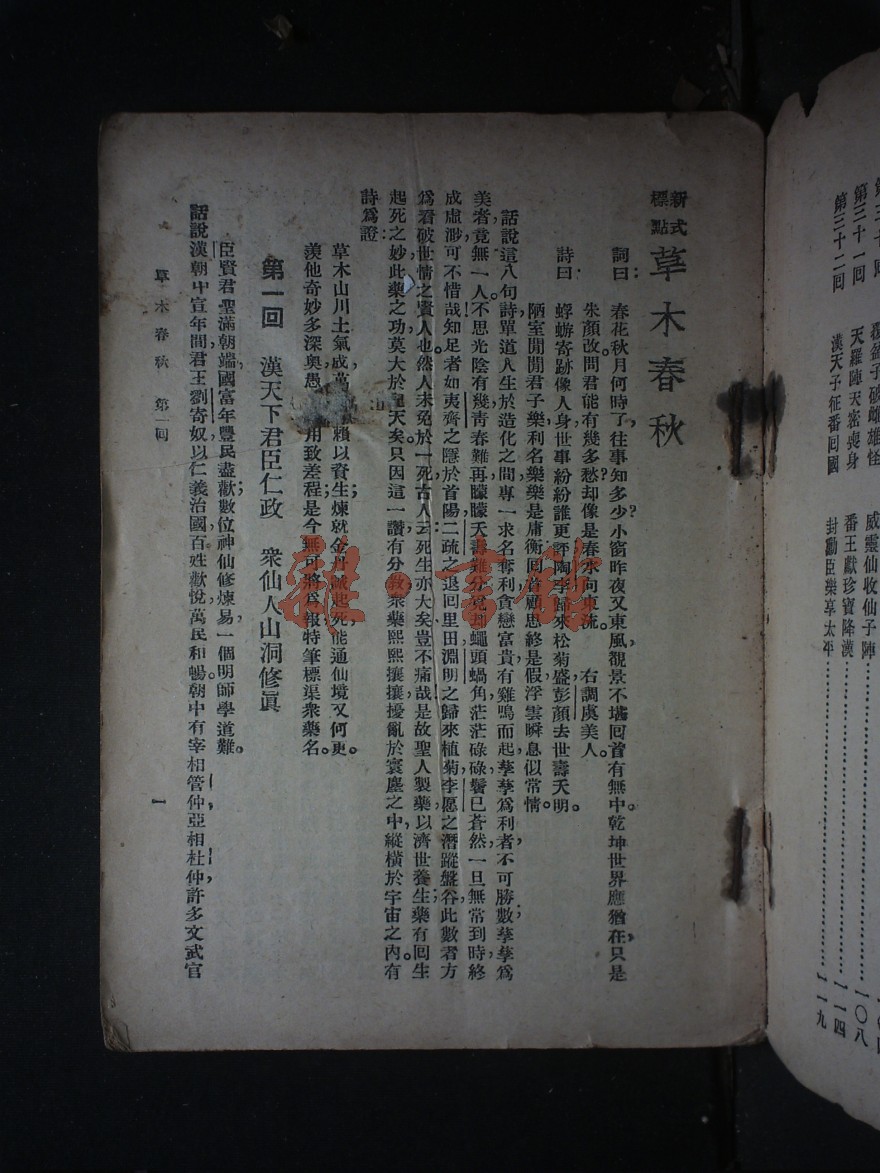 第三十一回 天羅陣天密喪身 威靈仙收仙子陣
第三十二回 漢天子征番囘國 番王獻珍寶降漢……一一四
封勳臣樂享太平……一一九
一〇八
新式標點 草木春秋
詞曰：春花秋月何時了，往事知多少？小窗昨夜又東風，覩景不堪囘首有無中。乾坤世界應猶在，只是
朱顏改。問君能有幾多愁？却像是春水向東流。　右調虞美人。
詩曰　蜉蝣寄跡像人身，世事紛紛誰更評，陶李歸來松菊盛，彭顏去世壽夭明。
陋室閒閒君子樂，利名樂樂是庸衡，囘首顧思終是假，浮雲瞬息似常情。
話說這八句詩，單道人生於造化之間，專一求名奪利，貪戀富貴，有雞鳴而起，孳孳爲利者，不可勝數；孳孳爲
美者，竟無一人。不思光陰有幾，靑春難再，矇矇夭壽難分，兌却蠅頭蝸角，茫茫碌碌，鬢巳蒼然，一旦無常到時，終
成虛渺，可不惜哉！知足者如夷齊之隱於首陽，二疏之退囘里田，淵明之歸來植菊，李愿之潛蹤盤谷，此數者方
爲看破世情之賢人也。然人未免於一死，古人云：死生亦大矣，豈不痛哉！是故聖人製藥以濟世養生，藥有囘生
起死之妙，此藥之功莫大於皇天矣。只因這一讚，有分敎衆藥熙熙攘攘，擾亂於寰塵之中，縱橫於宇宙之內。有
詩爲證：
草木山川土氣成，萬 賴以資生；煉就金丹 起死，能通仙境又何更。
羨他奇妙多深奧，愚 用致差程；是今無可將爲報，特筆標渠衆藥名。
第一囘　漢天下君臣仁政　衆仙人山洞修眞
臣賢君聖滿朝端，國富年豐民盡歡；數位神仙修煉易，一個明師學道難。
話說漢朝中宣年間，君王劉寄奴以仁義治國，百姓歡悅，萬民和暢。朝中有宰相管仲，亞相杜仲，許多文武官
草木春秋　第一囘　一